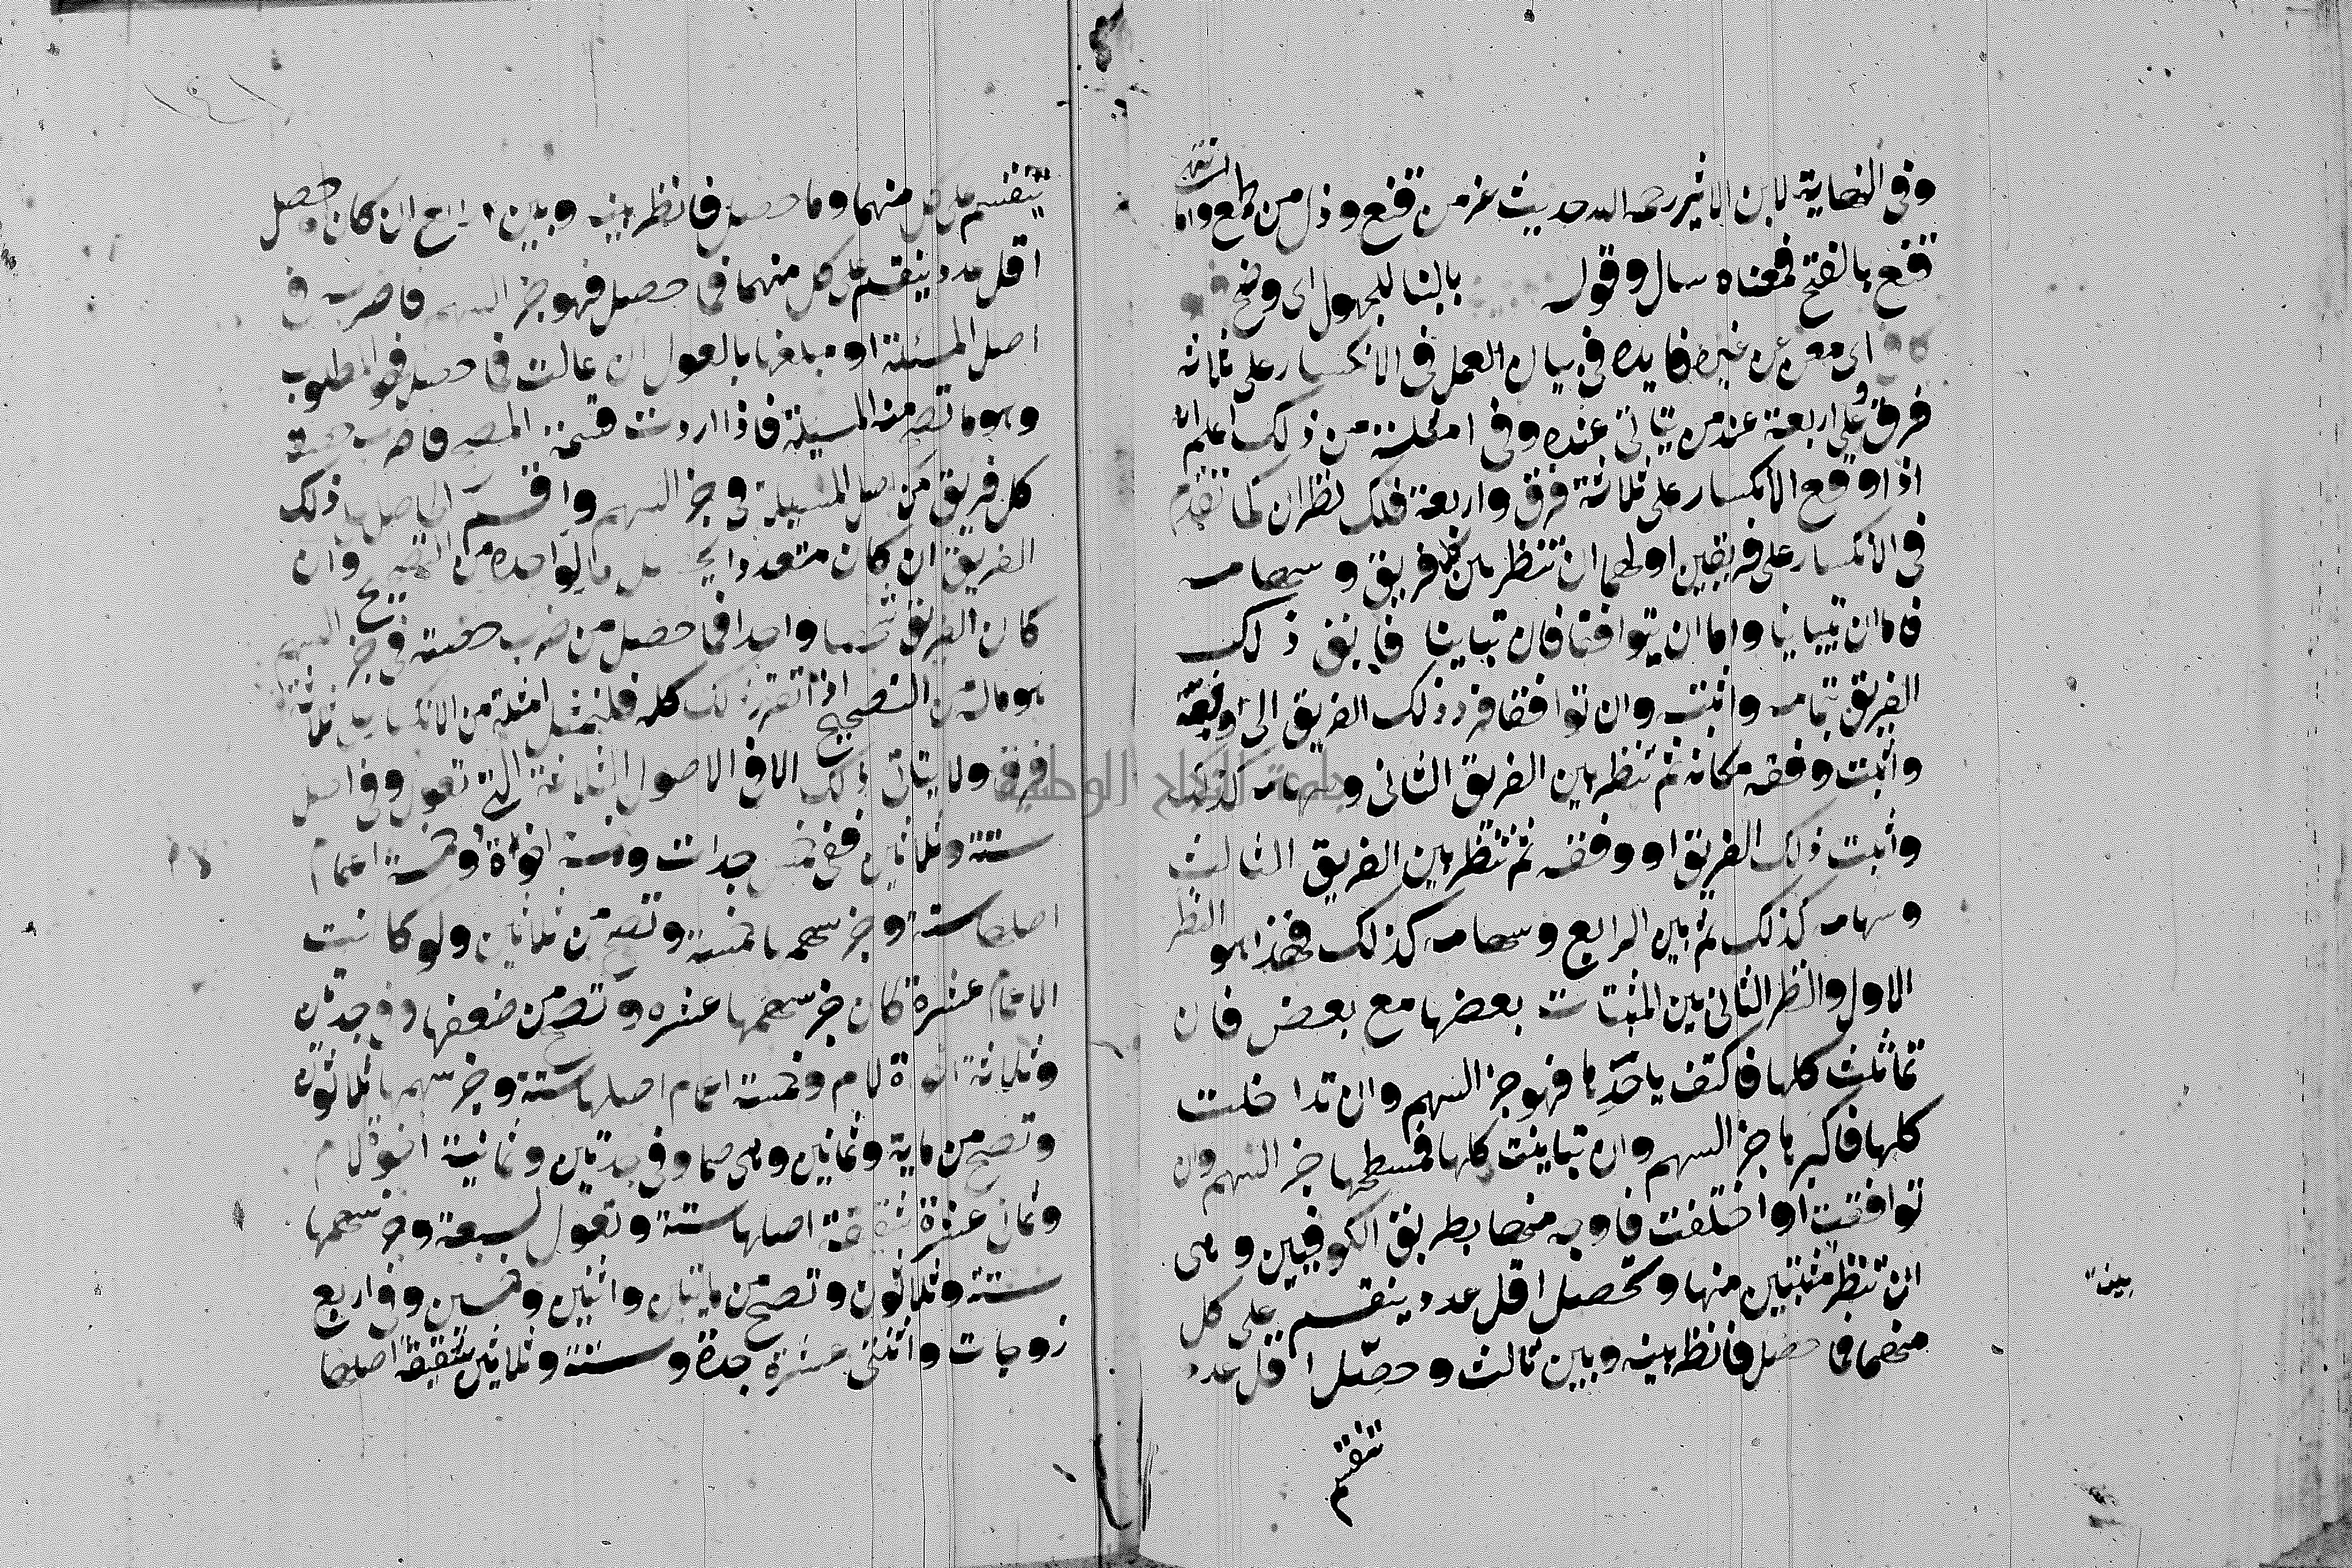 وفي النهاية لابن الاثير رحمه الله حديث عز من قنع وذل من طمع واما
قنع بالفتح فمعناه سال وقول بالبنا للمجهول اى وضح
كاف اى مغن عن غيره فايده في بيان العمل في الانكسار على ثلاثة
فرق وعلى اربعة عند من يتاتى عنده وفي امثلة من ذلك اعلم انه
اذا وقع الانكسار على ثلاثة فرق واربعة فلك نظران كما تقدم
في الانكسار على فريقين اولهما ان تنظر بين كل فريق وسهامه
فاما ان يتباينا واما ان يتوافقا فان تباينا فابق ذلك
الفريق بتمامه واثبته وان توافقا فرد ذلك الفريق الى وفقه
واثبت وفقه مكانه ثم تنظر بين الفريق الثانى وسهامه كذلك
واثبت ذلك الفريق او وفقه ثم تنظر بين الفريق الثالث
وسهامه كذلك ثم بين الرابع وسهامه كذلك فهذا هو النظر
الاول والنظر الثانى بين المثبتات بعضها مع بعض فان
تماثلث كلها فاكتف باحدها فهو جز السهم وان تداخلت
كلها فاكبرها جز السهم وان تباينت كلها فمسطحها جز السهم وان
توافقت او اختلفت فاوجه منها بطريق الكوفيين وهى
ان تنظر مثبتين منها وتحصل اقل عدد ينقسم على كل
منهما فما حصل فانظر بينه وبين ثالث وحصل اقل عدد
تنقسم
ينقسم على كل منهما وما حصل فانظر بينه وبين الرابع ان كان وحصل
اقل عدد ينقسم على كل منهما فما حصل فهو جز السهم فاضربه في
اصل المسئلة او مبلغها بالعول ان عالت فما حصل فهو المطلوب
وهو ما تصح منه المسيلة فاذا اردت قسمة المصح فاضرب حصة
كل فريق من اصل المسيلة في جز السهم واقسم الحاصل على ذلك
الفريق ان كان متعددا يحصل ما لواحده من التصحيح وان
كان الفريق شخصا واحدا فما حصل من ضرب حصته في جز السهم
هو ماله من التصحيح اذا تقرر ذلك كله فلنمثل امثلة من الانكسار على ثلاثة
فرق ولا يتاتى ذلك الا في الاصول الثلاثة التي تعول وفي اصل
ستة وثلاثين ففي خمس جدات وخمسة اخوة وخمسة اعمام
اصلها ستة وجز سهمها خمسة وتصح من ثلاثين ولو كانت
الاعمام عشرة كان جز سهمها عشره وتصح من ضعفها وفي جدتين
وثلاثة اخوة لام وخمسة اعمام اصلها ستة وجز سهمها ثلاثون
وتصح من ماية وثمانين وهى صما وفي جدتين وثمانية اخوة لام
وثمان عشرة شقيقة اصلها ستة وتعول لسبعة وجز سهمها
ستة وثلاثون وتصح من مايتين واثنين وخمسين وفي اربع
زوجات واثنتى عشرة جدة وستة وثلاثين شقيقة اصلها